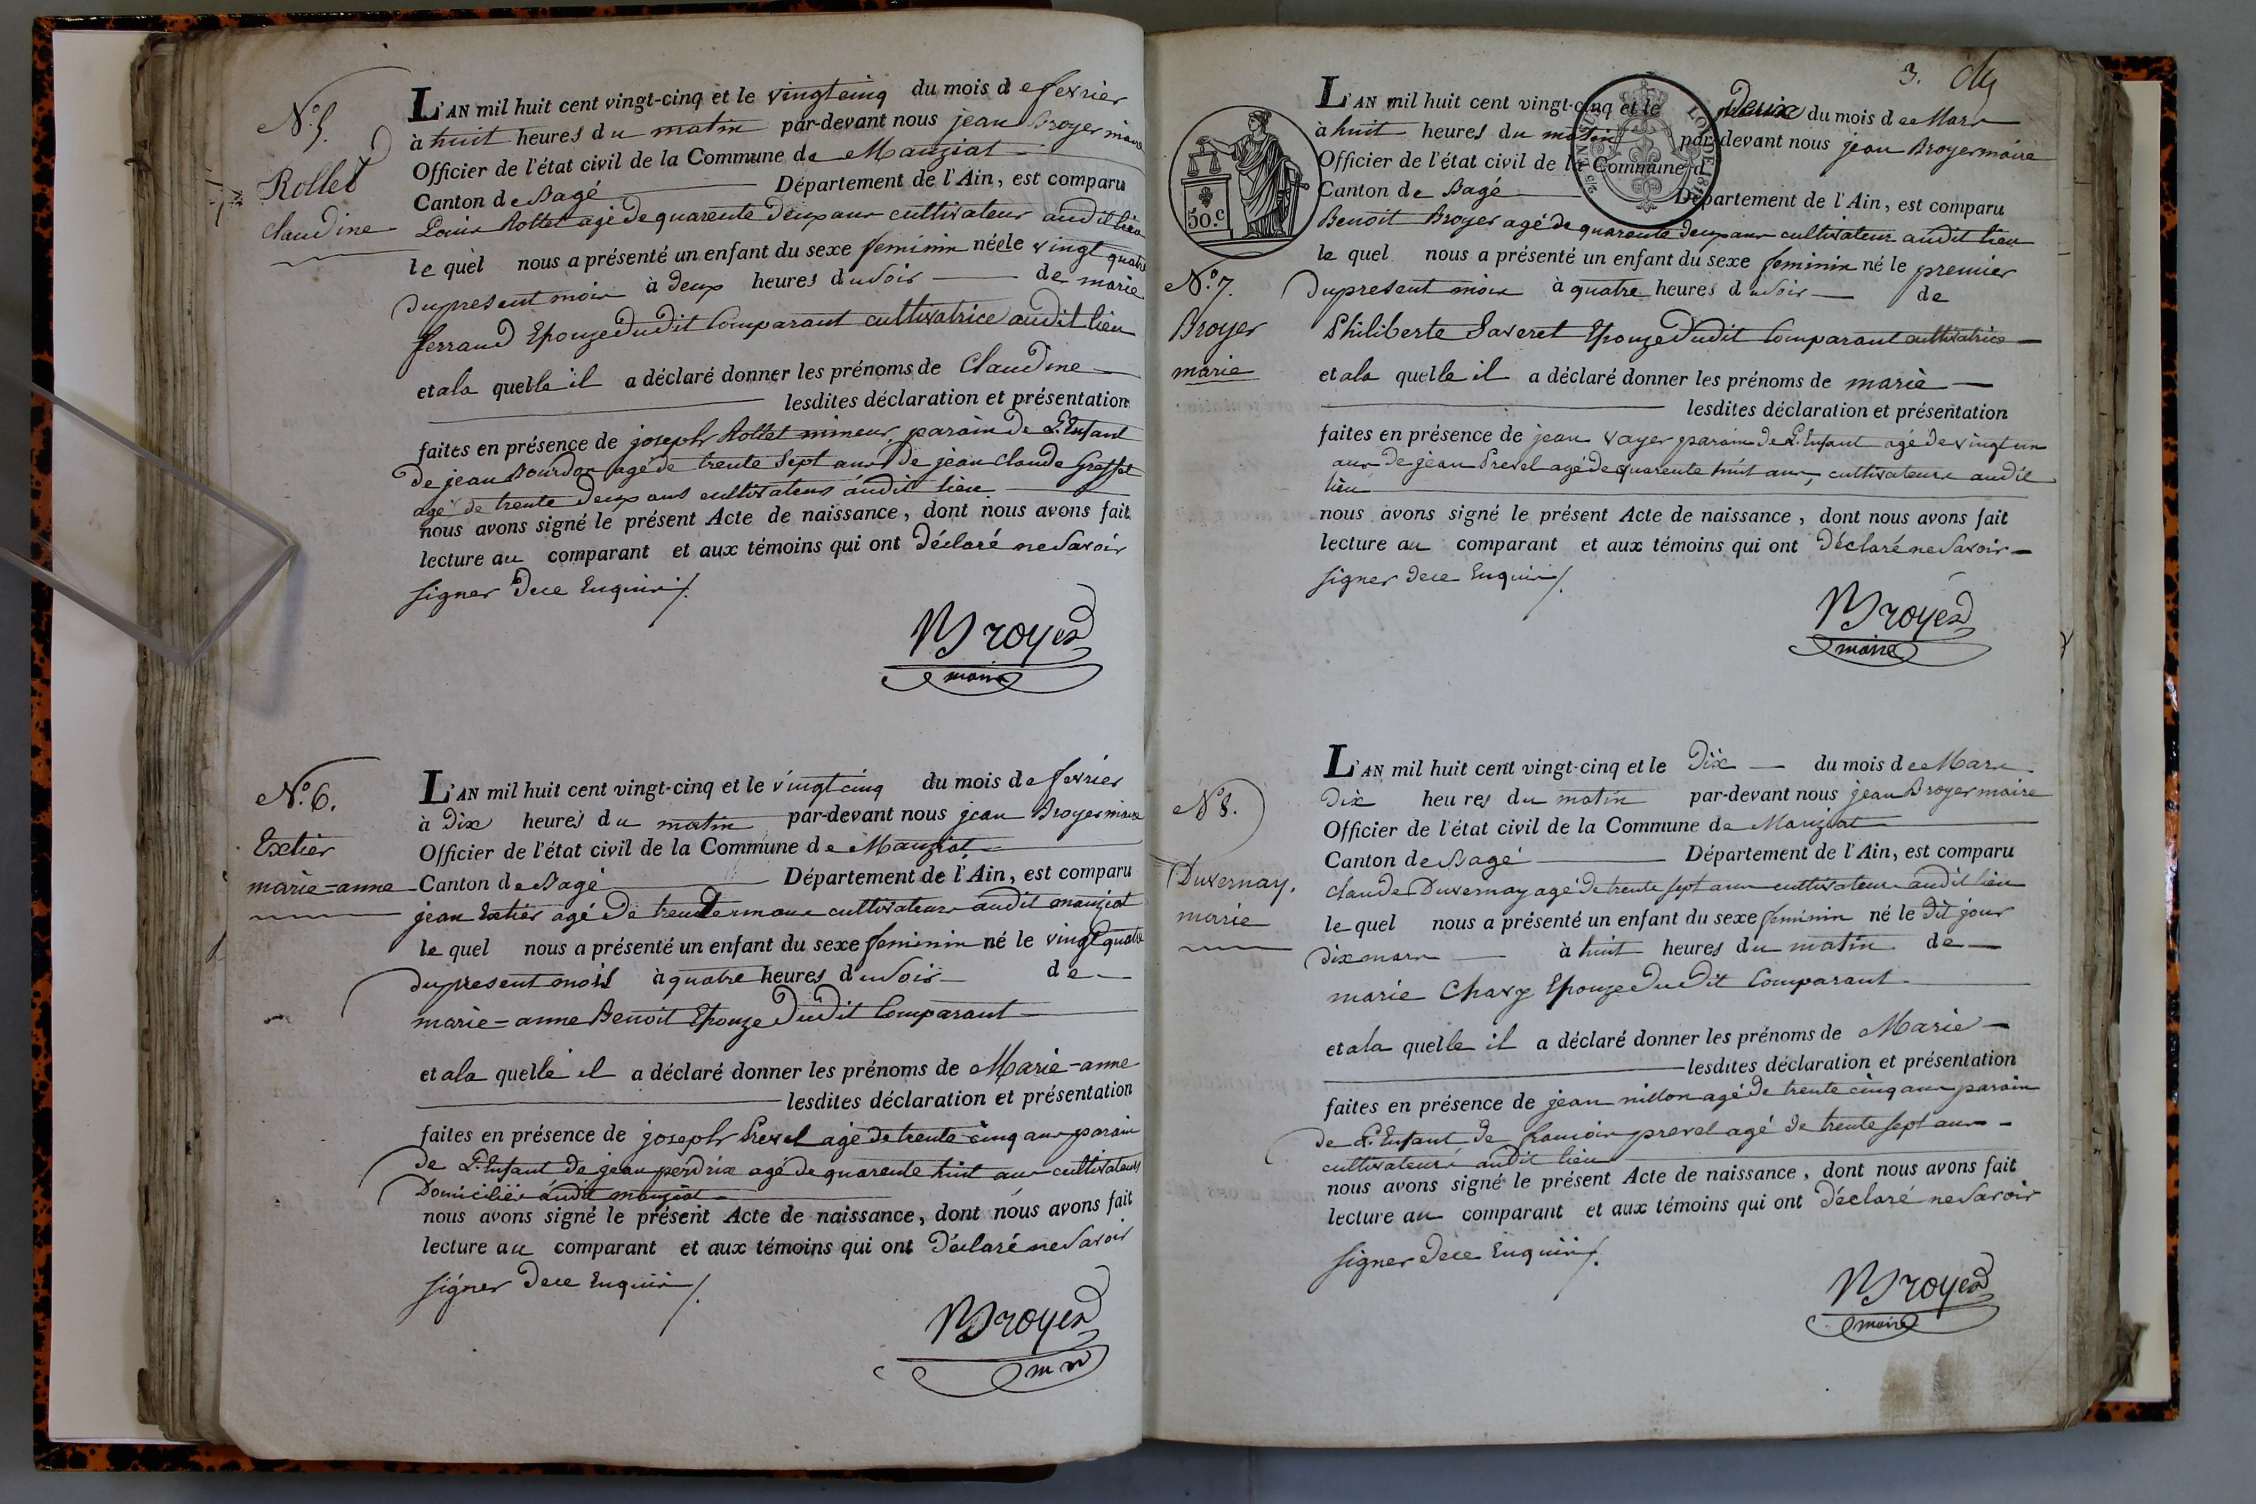 N.º 5.
Rollet
claudine
L'AN mil huit cent vingt-cinq et le vingt cinq du mois de fevrier
à huit heures du matin par-devant nous jean Broyer maire
Officier de l'état civil de la Commune de Manziat
Canton de Bagé Département de l'Ain, est comparu
Louis Rollet agé de quarente deux ans cultivateur audit lieu
le quel nous a présenté un enfant du sexe feminin née le vingt quatre
du present mois à deux heures du soir de marie
ferrand Epouze du dit Comparant cultivatrice audit lieu
et a la quelle il a déclaré donner les prénoms de Claudine
lesdites déclaration et présentation
faites en présence de joseph Rollet mineur, parain de L'Enfant
de jean Bourdon agé de trente Sept ans de jean claude Greffet
agé de trente deux ans cultivateurs audit lieu
nous avons signé le présent Acte de naissance, dont nous avons fait
lecture au comparant et aux témoins qui ont déclaré ne Savoir
signer de ce Enquis /.
Broyer
maire
N.º 6.
Extier
marie=anne
L'AN mil huit cent vingt-cinq et le vingt cinq du mois de fevrier
à Dix heures du matin par-devant nous jean Broyer maire
Officier de l'état civil de la Commune de Manziat
Canton de Bagé Département de l'Ain, est comparu
jean Extier agé de cultivateur audit manziat
le quel nous a présenté un enfant du sexe feminin né le vingt quatre
du present mois à quatre heures du soir de
marie=anne Benoit Epouze du dit Comparant
et a la quelle il a déclaré donner les prénoms de Marie-anne
lesdites déclaration et présentation
faites en présence de joseph Prevel agé de trente cinq ans parain
de L'Enfant de jean perdrix agé de quarente huit ans cultivateurs
Domiciliés audit manziat
nous avons signé le présent Acte de naissance, dont nous avons fait
lecture au comparant et aux témoins qui ont déclaré ne Savoir
signer de ce Enquis /.
Broyer
3.
50.C
N.º 7.
Broyer
marie
L'AN mil huit cent vingt-cinq et le Deux du mois de Mars
à huit heures du matin par-devant nous jean Broyer maire
Officier de l'état civil de la Commune d
Canton de Bagé Département de l'Ain, est comparu
Benoit Broyer agé de quarante deux ans cultivateur audit lieu
le quel nous a présenté un enfant du sexe feminin né le premier
du present mois à quatre heures du soir de
Philiberte Saveret Epouze du dit Comparant cultivatrice
et a la quelle il a déclaré donner les prénoms de marie
lesdites déclaration et présentation
faites en présence de jean voyer parain de L'Enfant agé de vingt un
ans de jean Prevel agé de quarente huit ans, cultivateurs audit
lieu
nous avons signé le présent Acte de naissance, dont nous avons fait
lecture au comparant et aux témoins qui ont déclaré ne Savoir
signer de ce Enquis /.
Broyer
maire
N.º 8.
Duvernay.
marie
L'AN mil huit cent vingt-cinq et le Dix du mois de Mars
Dix heures du matin par-devant nous jean Broyer maire
Officier de l'état civil de la Commune de Manziat
Canton de Bagé Département de l'Ain, est comparu
claude Duvernay agé de trente sept ans cultivateur audit lieu
le quel nous a présenté un enfant du sexe feminin né le dit jour
dix mars à huit heures du matin de
marie Chavy Epouze du dit Comparant
et a la quelle il a déclaré donner les prénoms de Marie
lesdites déclaration et présentation
faites en présence de jean millon agé de trente cinq ans parain
de L'Enfant de francois prevel agé de trente sept ans
cultivateurs audit lieu
nous avons signé le présent Acte de naissance, dont nous avons fait
lecture au comparant et aux témoins qui ont déclaré ne Savoir
signer de ce Enquis /.
Broyer
maire